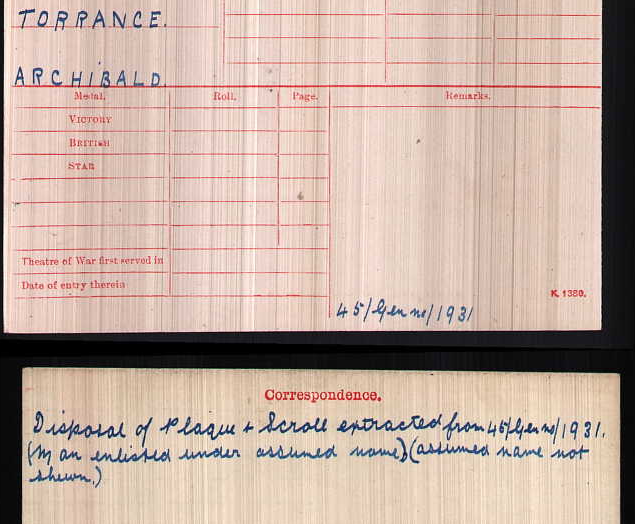 TORRANCE.
ARCHIBALD.
Medal. Roll. Page. Remarks.
VICTORY
BRITISH
STAR
Theatre of War first served in
Date of entry therein
K. 1380.
45/Gen no/1931
Correspondence.
Disposal of Plaque + Scroll extracted from 45/Gen no/1931.
(Man enlisted under assumed name) (assumed name not
shewn.)